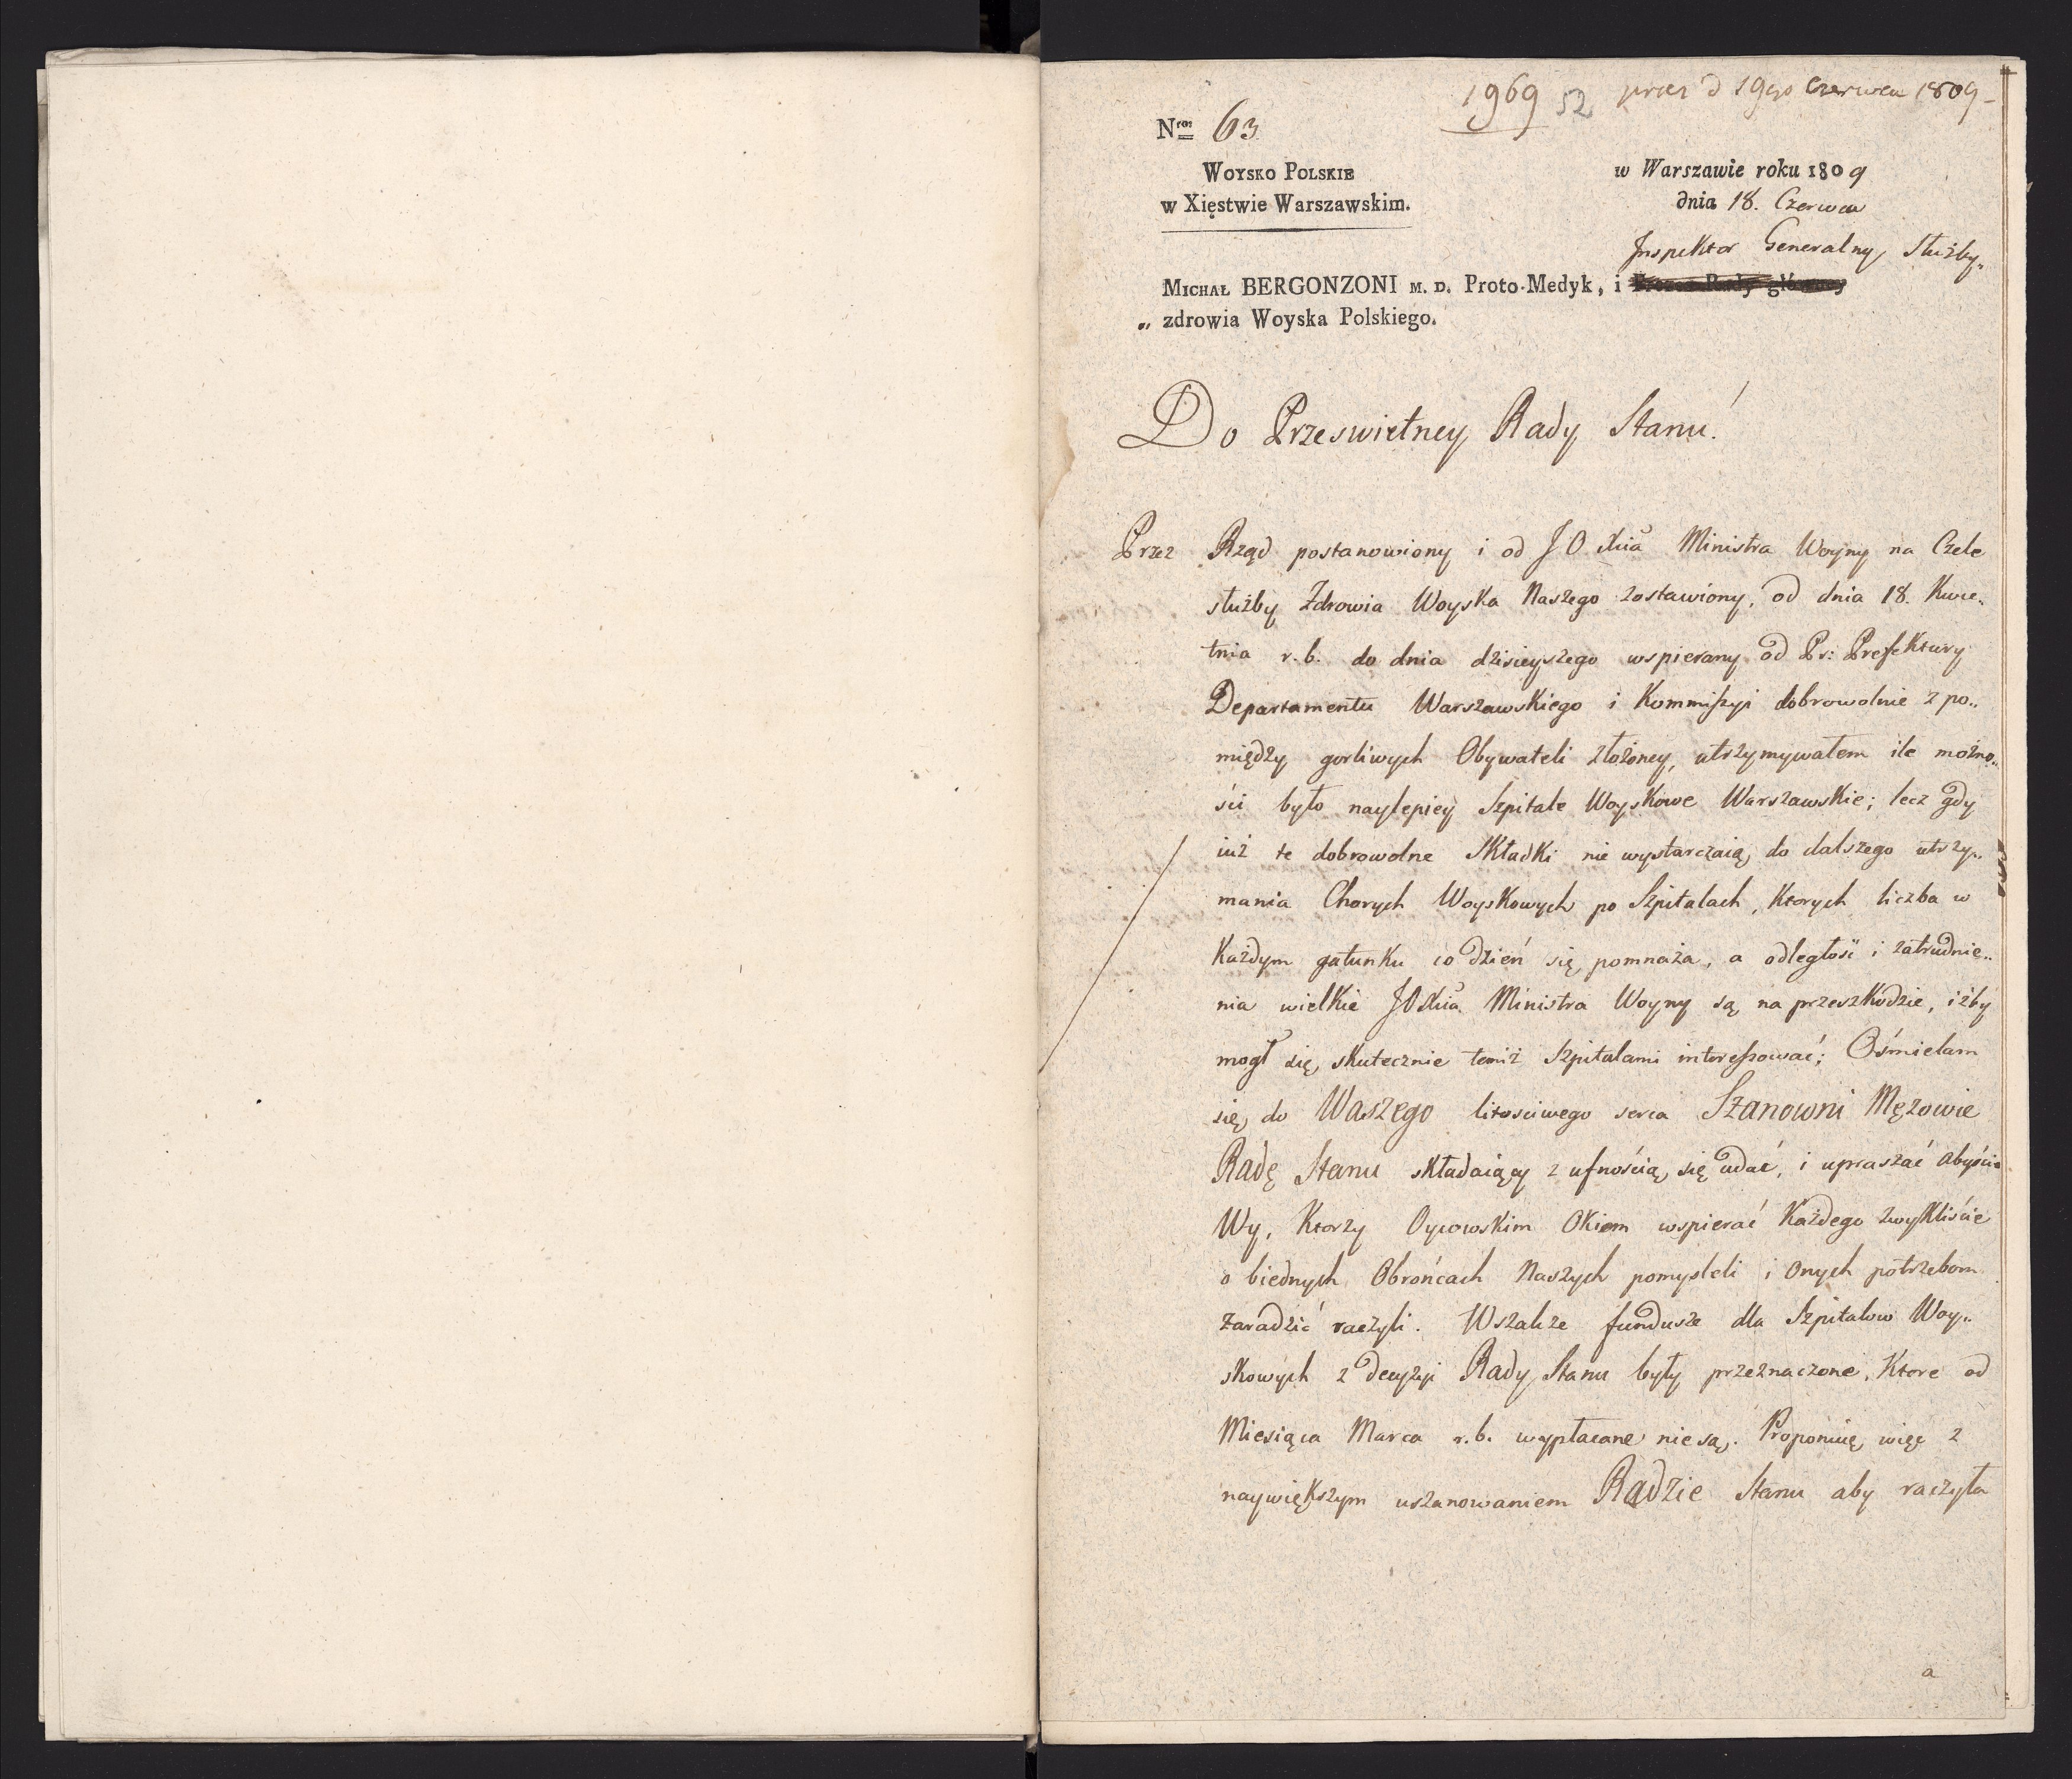 1969 52 prez d 19go Czerwca 1809
Nros 63
WOYSKO POLSKIE
w Xięstwie Warszawskim.
w Warszawie roku 1809
dnia 18. Czerwca
Inspektor Generalny Służby„
MICHAŁ BERGONZONI M. D. Proto-Medyk, i Prezes Rady główney
„ zdrowia Woyska Polskiego.
Do Przeswietney Rady Stanu!
Przez Rząd postanowiony i od JO Xcia Ministra Woyny na Czele
służby Zdrowia Woyska Naszego zostawiony, od dnia 18. Kwie„
tnia r.b. do dnia dzisieyszego wspierany od Pr: Prefektury
Departamentu Warszawskiego i Kommissyi dobrowolnie z po„
między gorliwych Obywateli złożoney, utrzymywałem ile możno„
ści było naylepiey Szpitale Woyskowe Warszawskie; lecz gdy
iuż te dobrowolne Składki nie wystarczaią do dalszego utrzy„
mania Chorych Woyskowych po Szpitalach, Ktorych liczba w
Każdym gatunku co dzień się pomnaża, a odległość i zatrudnie„
nia wielkie JO Xcia Ministra Woyny są na przeszkodzie, iżby
mogł się skutecznie temiż Szpitalami interessować; Ośmielam
się do Waszego litościwego serca Szanowni Mężowie
Radę Stanu składaiący z ufnością się udać, i upraszać abyście
Wy, Ktorzy Oycowskim Okiem wspierać Każdego zwykliście
o biednych Obrońcach Naszych pomysleli i Onych potrzebom
zaradzić raczyli. Wszakże fundusze dla Szpitalow Woy„
skowych z decyzyi Rady Stanu były przeznaczone, Ktore od
Miesiąca Marca r.b. wypłacane nie są. Proponuię więc z
naywiększym uszanowaniem Radzie Stanu aby raczyła
a